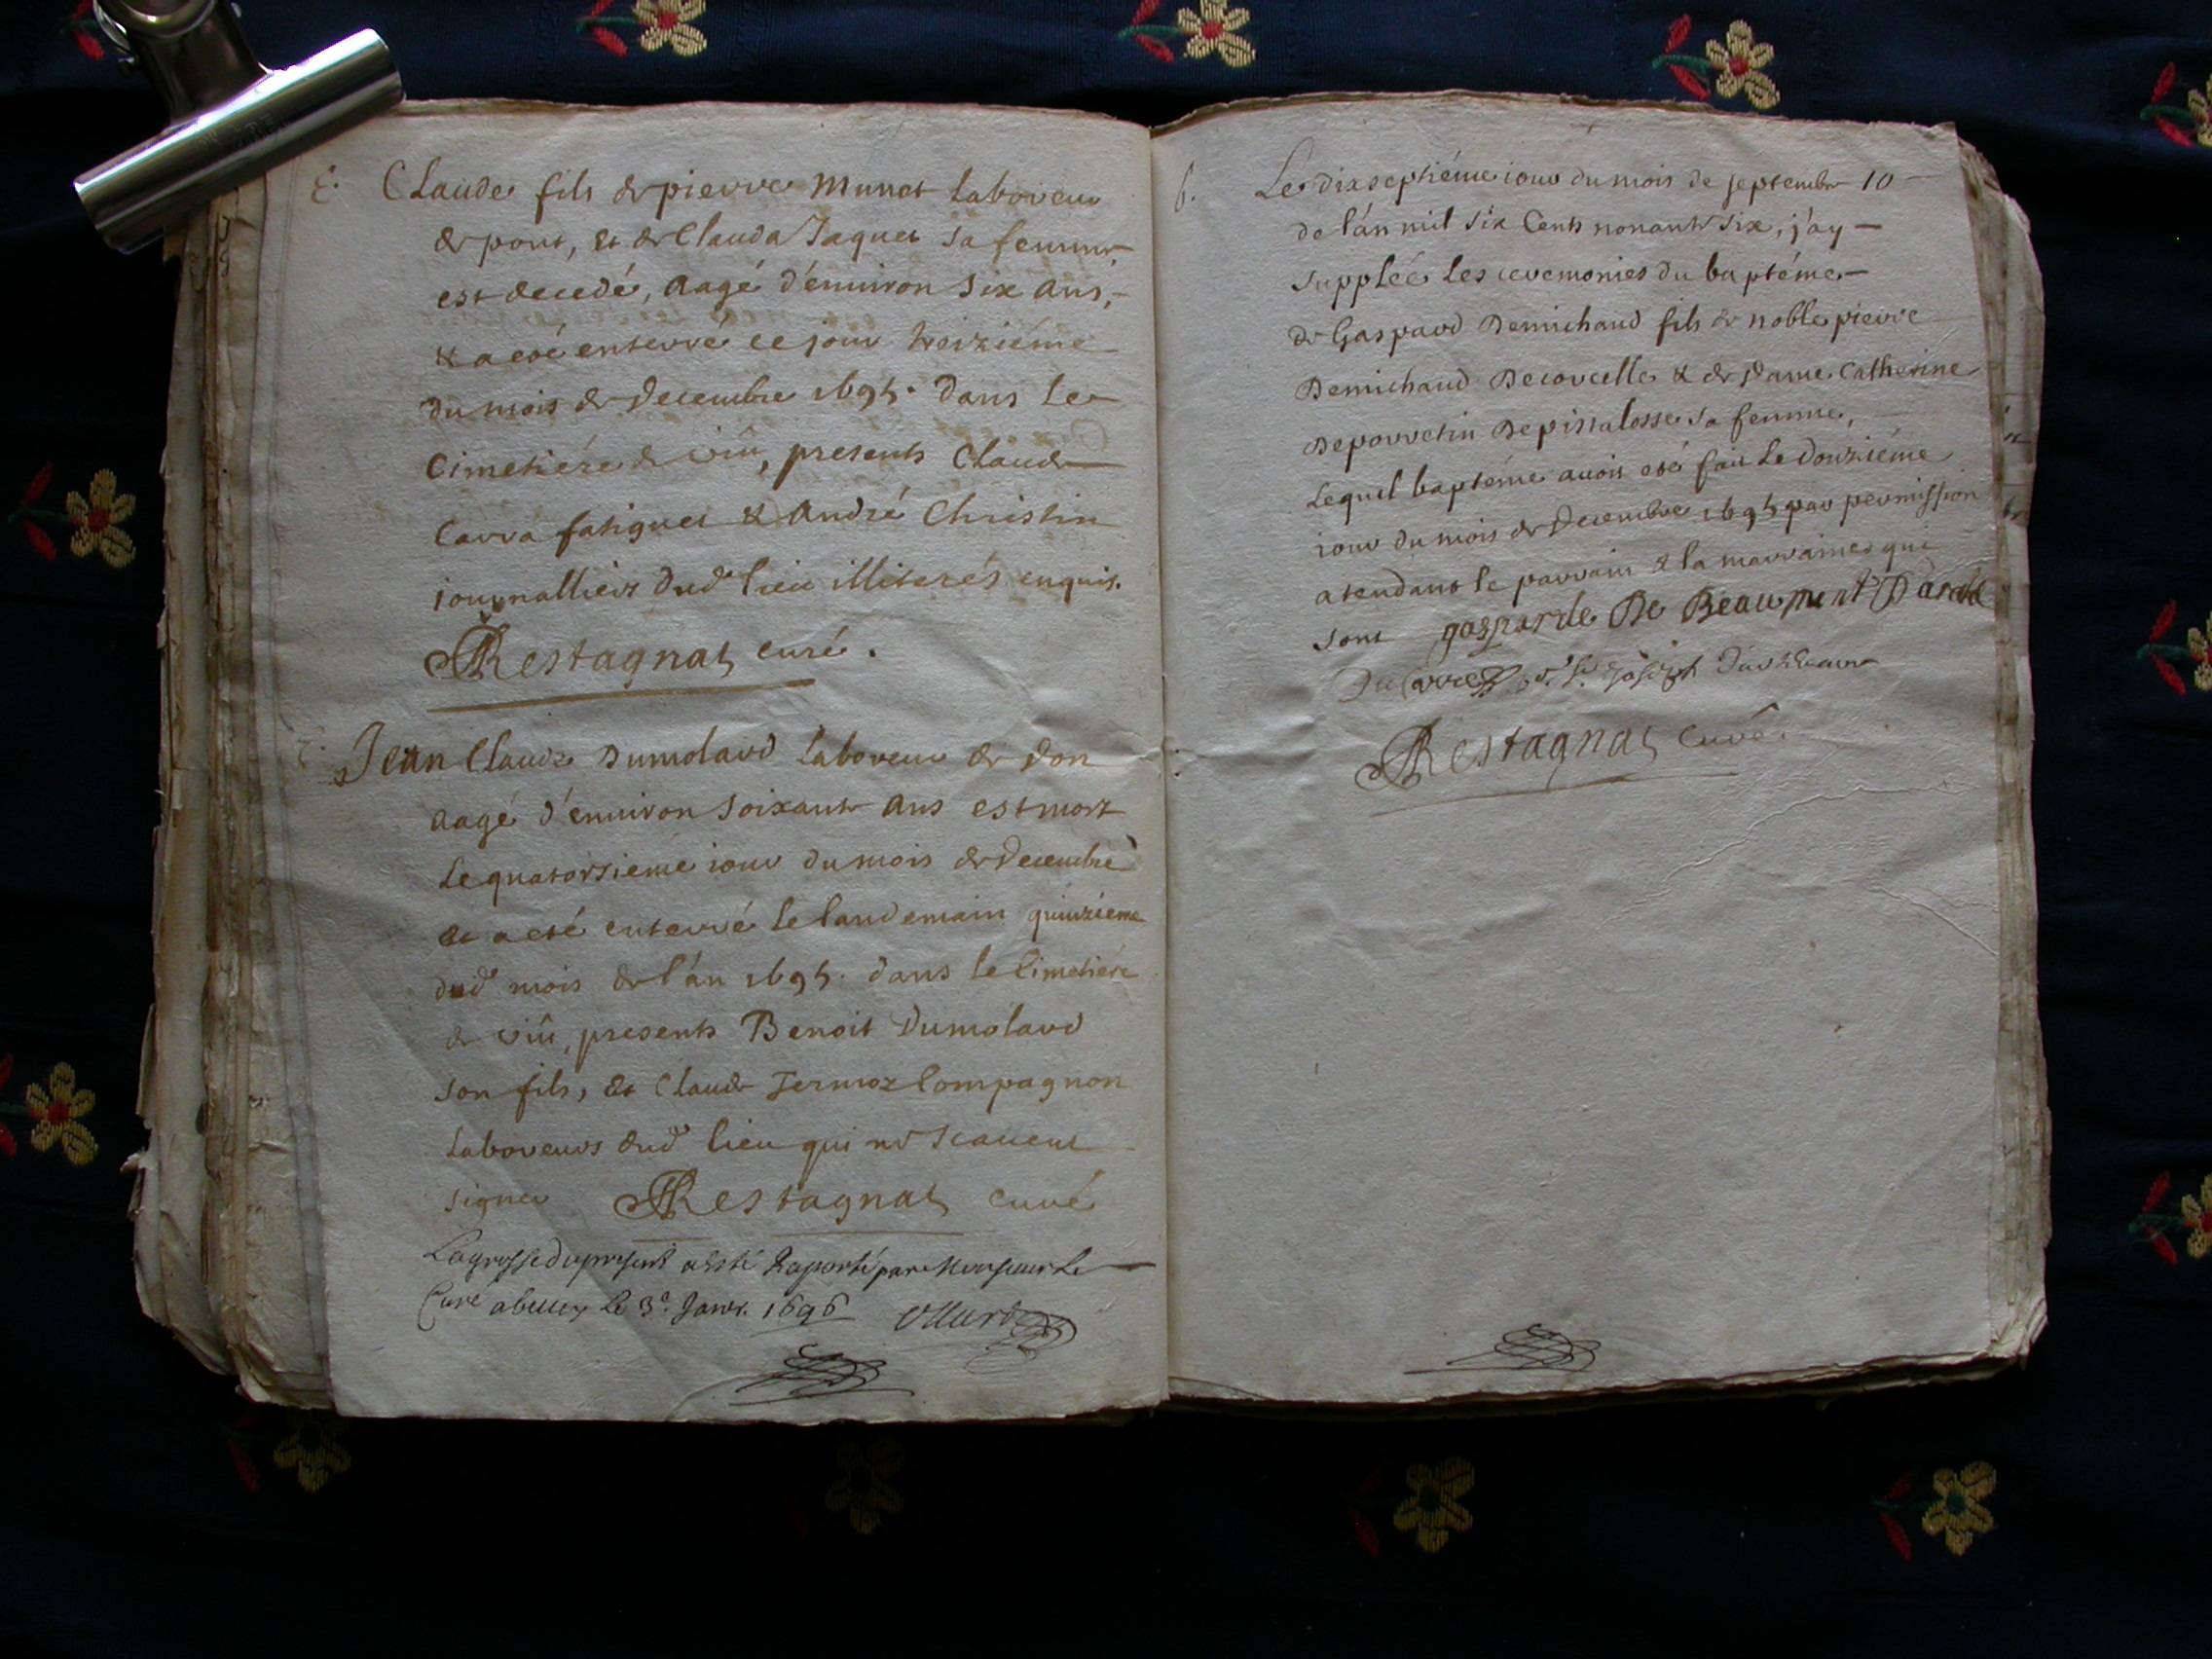 E. Claude fils de pierre Munet laboreur
de pont, et de Clauda Jaquet sa femme
est decedé, aagé d'enuiron six ans,
& a eté enterré ce jour treizième
du mois de Decembre 1695. dans le
Cimetiére de viû, presents Claude
Carra fatiguet & André Christin
journalliers dud lieu illiterés enquis.
Restagnat curé.
E. Jean Claude Dumolard laboreur de Don
aagé d'enuiron soixante ans est mort
le quatorsieme iour du mois de Decembre
et a eté enterré le landemain quinziéme
dud mois de l'an 1695. dans le Cimetiére
de viû, presents Benoit Dumolard
son fils, et Claude Jermoz Compagnon
laboreurs dud lieu qui ne scauent
signer Restagnat curé
La grosse du present a esté raporté par Monsieur le
Curé a belley le 3e. Janvr. 1696
b. Le dixseptiéme iour du mois de septembre 10
de l'an mil six Cents nonante six, j'ay
supplée les ceremonies du baptéme
de Gaspard Demichaud fils de noble pierre
Demichaud Decorcelle & de Dame Catherine
Deporretin Depissalosse sa femme,
Lequel baptéme auoit eté fait le douziéme
iour du mois de Decembre 1695 par permission
atendant le parrain & la marraine qui
sont gasparde De Beaumont
Joseph
Restagnat curé